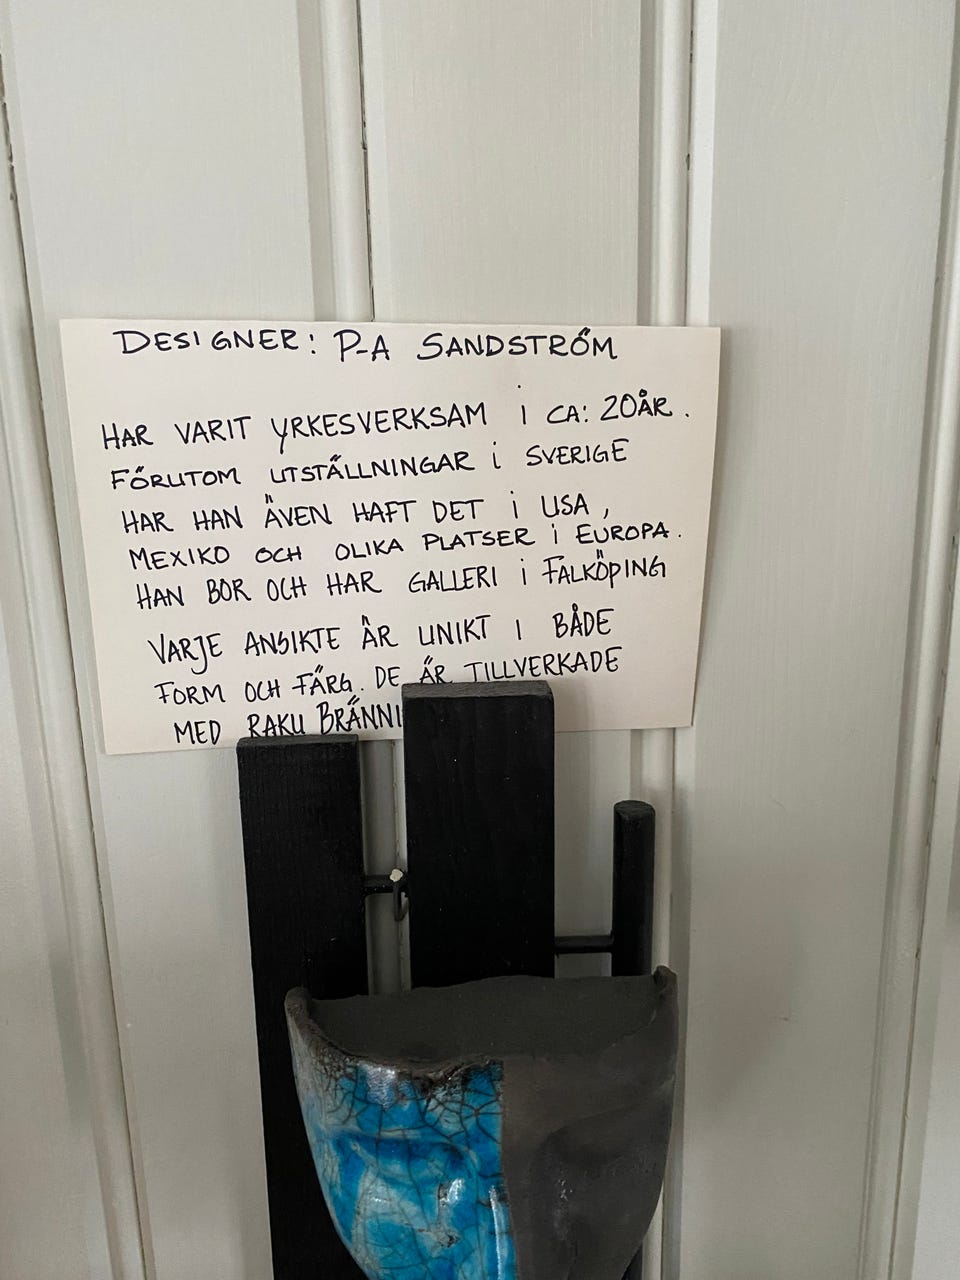 DESIGNER: P-A SANDSTRÖM
HAR VARIT YRKESVERKSAM I CA: 20ÅR.
FÖRUTOM UTSTÄLLNINGAR i SVERIGE
HAR HAN ÄVEN HAFT DET i USA,
MEXIKO OCH OLIKA PLATSER i EUROPA.
HAN BOR OCH HAR GALLERI i FALKÖPING
VARJE ANSIKTE ÄR UNIKT I BÅDE
FORM OCH FÄRG. DE ÄR TILLVERKADE
MED RAKU BRÄNNI